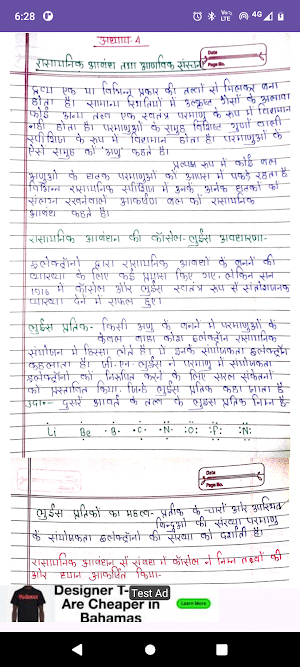 6:28
VoWiFi LTE 4G
अध्याय 4
Date
Page No.
रासायनिक आबंध तथा आण्विक संरचना
द्रव्य एक या विभिन्न प्रकार की तत्वों से मिलकर बना
होता है। सामान्य स्थितियों में उत्कृष्ट गैसों के अलावा
कोई अन्य तत्व एक स्वतंत्र परमाणु के रूप में विद्यमान
नहीं होता है। परमाणुओं के समूह विशिष्ट गुणों वाली
स्पीशीज के रूप में विद्यमान होता है। परमाणुओं के
ऐसे समूह को 'अणु' कहते है।
प्रत्यक्ष रूप में कोई बल
अणुओं के घटक परमाणुओं को आपस में पकड़े रहता है
विभिन्न रासायनिक स्पीशीज में उनके अनेक घटकों को
संलग्न रखनेवाले आकर्षण बल को रासायनिक
आबंध कहते है।
रासायनिक आबंधन की कॉसेल-लुईस अवधारणा-
इलेक्ट्रॉनों द्वारा रासायनिक आबंधो के बनने की
व्याख्या के लिए कई प्रयास किए गए, लेकिन सन्
1916 में कॉसेल और लुईस स्वतंत्र रूप से संतोषजनक
व्याख्या देने में सफल हुए।
लुईस प्रतिक- किसी अणु के बनने में परमाणुओं के
केवल बाह्य कोश इलेक्ट्रॉन रासायनिक
संयोजन में हिस्सा लेते है। ये उनके संयोजकता इलेक्ट्रॉन
कहलाता है। जी.एन. लुईस ने परमाणु में संयोजकता
इलेक्ट्रॉनों को निरूपित करने के लिए सरल संकेतनों
को प्रस्तावित किया जिन्हे लुईस प्रतिक कहा जाता है
उदा०- दूसरे आवर्त के तत्व के लुईस प्रतिक निम्न है-
Li Be B C N O F N
Date
Page No.
लुईस प्रतिकों का महत्व- प्रतीक के चारों ओर उपस्थित
बिन्दुओं की संख्या परमाणु
के संयोजकता इलेक्ट्रॉनों की संख्या को दर्शाती है।
रासायनिक आबंधन से संबंध में कॉसेल ने निम्न तथ्यों की
और ध्यान आकर्षित किया-
Designer T-
Are Cheaper in
Bahamas
Test Ad
Learn More